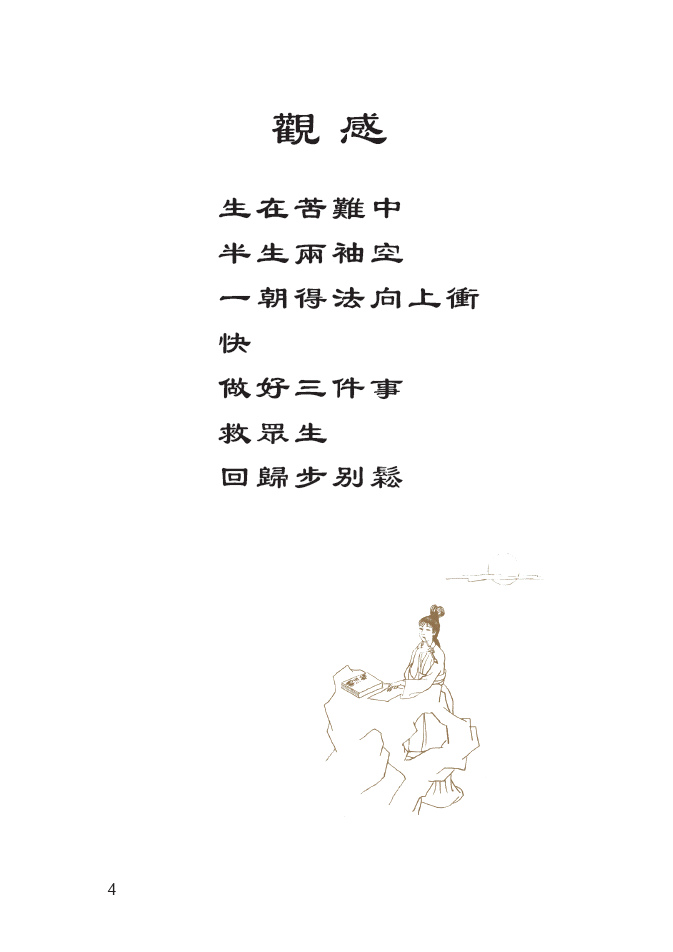 觀感
生在苦難中
半生兩袖空
一朝得法向上衝
快
做好三件事
救眾生
回歸步别鬆
4